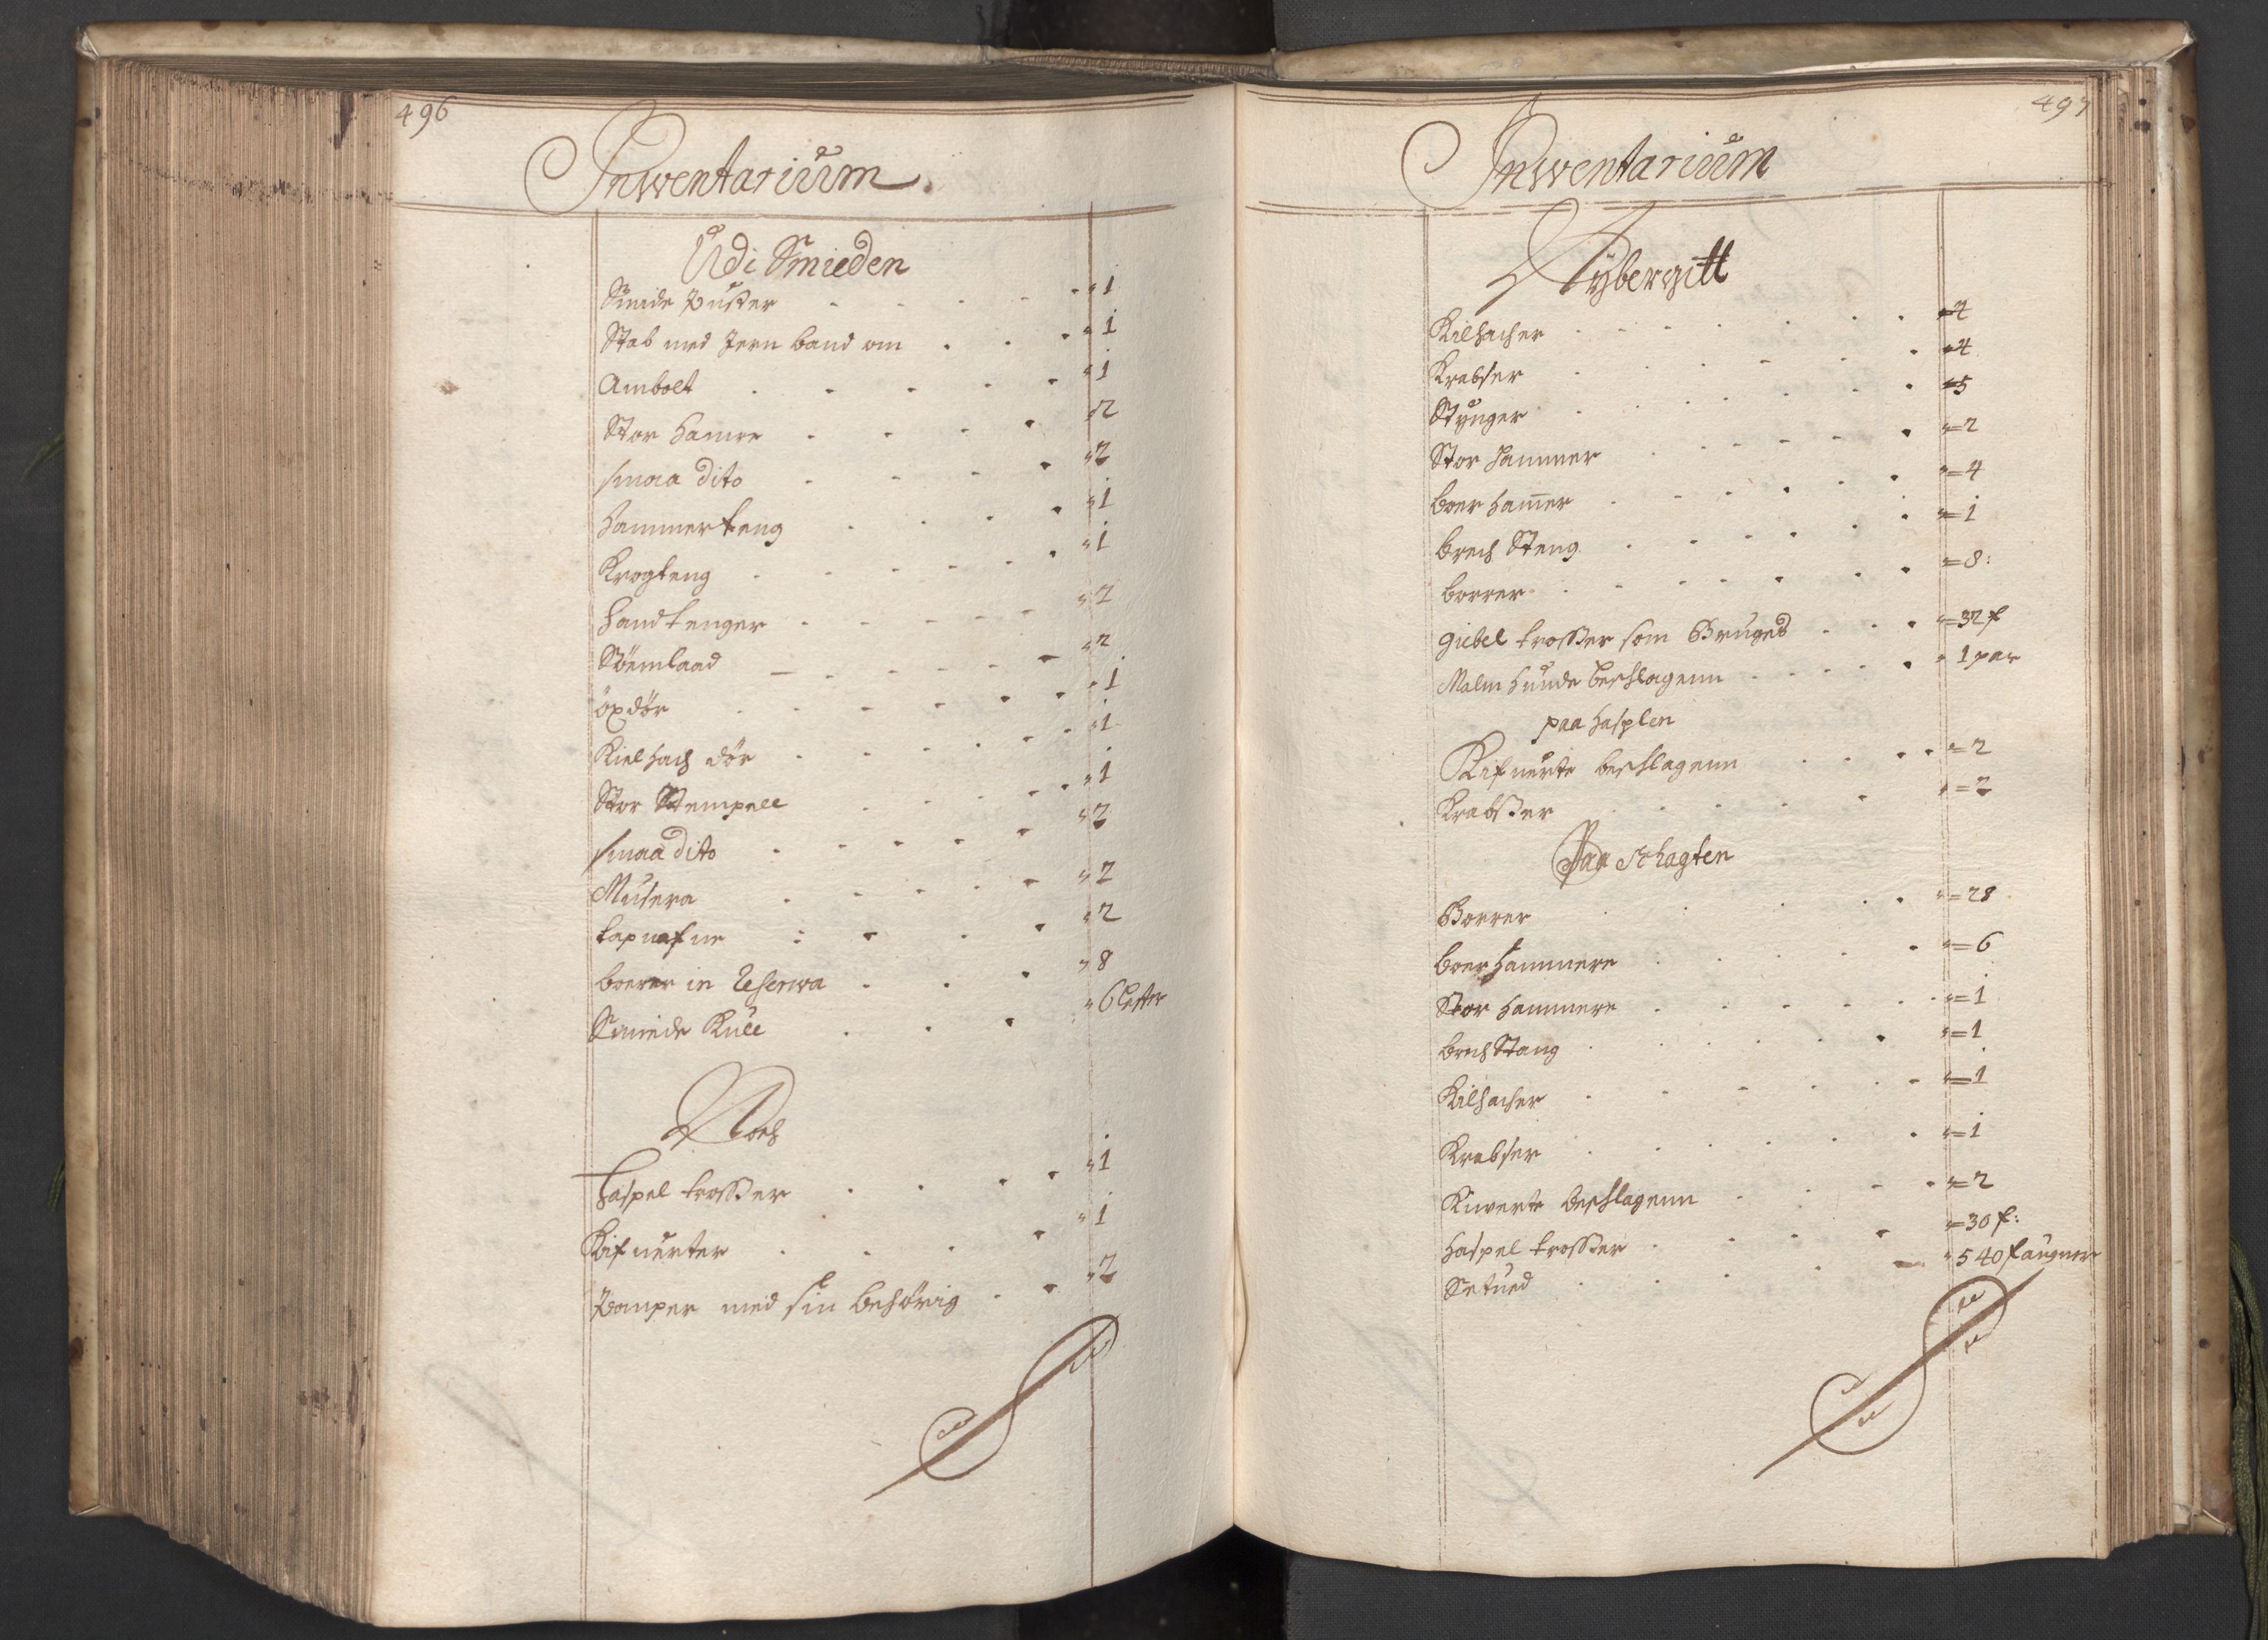 496
Inwentarium
Udi Smieden
Smide Puster 1
Stab med Jern band om 1
Ambolt 1
Stor hamre 2
smaa dito 2
hammerteng 1
Krogteng 1
handtenger 2
Sømlaad 2
öxdör 1
Kielhach dör 1
Stor Stempell 1
smaa dito 2
2
tapnafne 2
borrer in Reserwa 8
Smiede Kull 6 lester
Noch
haspel trosser 1
Kifnerter 1
Pomper med sin behörig 2
497
Inwentarium
Nÿbergitt
Kilhacher 4
Krabser 4
Stynger 5
Stor hammer 2
boer ham̄er 4
brech Steng 1
borrer 8:
giebel trosser som Bruges 32 f
Malm hunde beschlagenn 1 par
paa hasplen
Kifnerte beschlagenn 2
Krabsser 2
Paa Schagten
Borrer 28
boer hammere 6
Stor hammere 1
brech Stang 1
Kilhacher 1
Krabser 1
Kiwerte beschlagenn 2
haspel trosser 30 f:
Setued 540 faugner